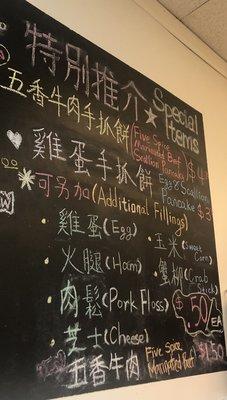 特別推介 Special Items
五香牛肉手抓餅 (Five Spice Marinated Beef Scallion Pancake)
雞蛋手抓餅 Egg & Scallion Pancake $3
可另加 (Additional Fillings)
・雞蛋 (Egg)
・玉米 (Sweet Corn)
・火腿 (Ham)
・蟹柳 (Crab Stick)
・肉鬆 (Pork Floss)
$.50/EA
・芝士 (Cheese)
・五香牛肉 Five Spice Marinated Beef $1.50